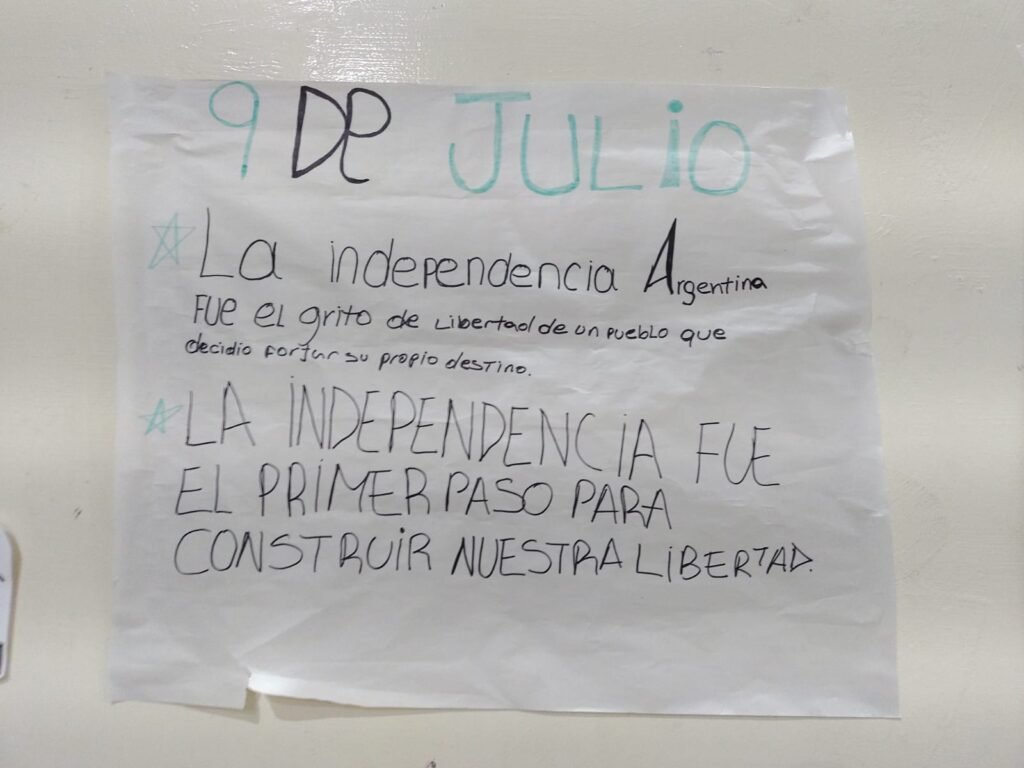 9 DE JULIO
La independencia Argentina
FUE EL grito de Libertad de un PUEBLO que
decidio forjar su propio destino.
LA INDEPENDENCIA FUE
EL PRIMER PASO PARA
CONSTRUIR NUESTRA LIBERTAD.